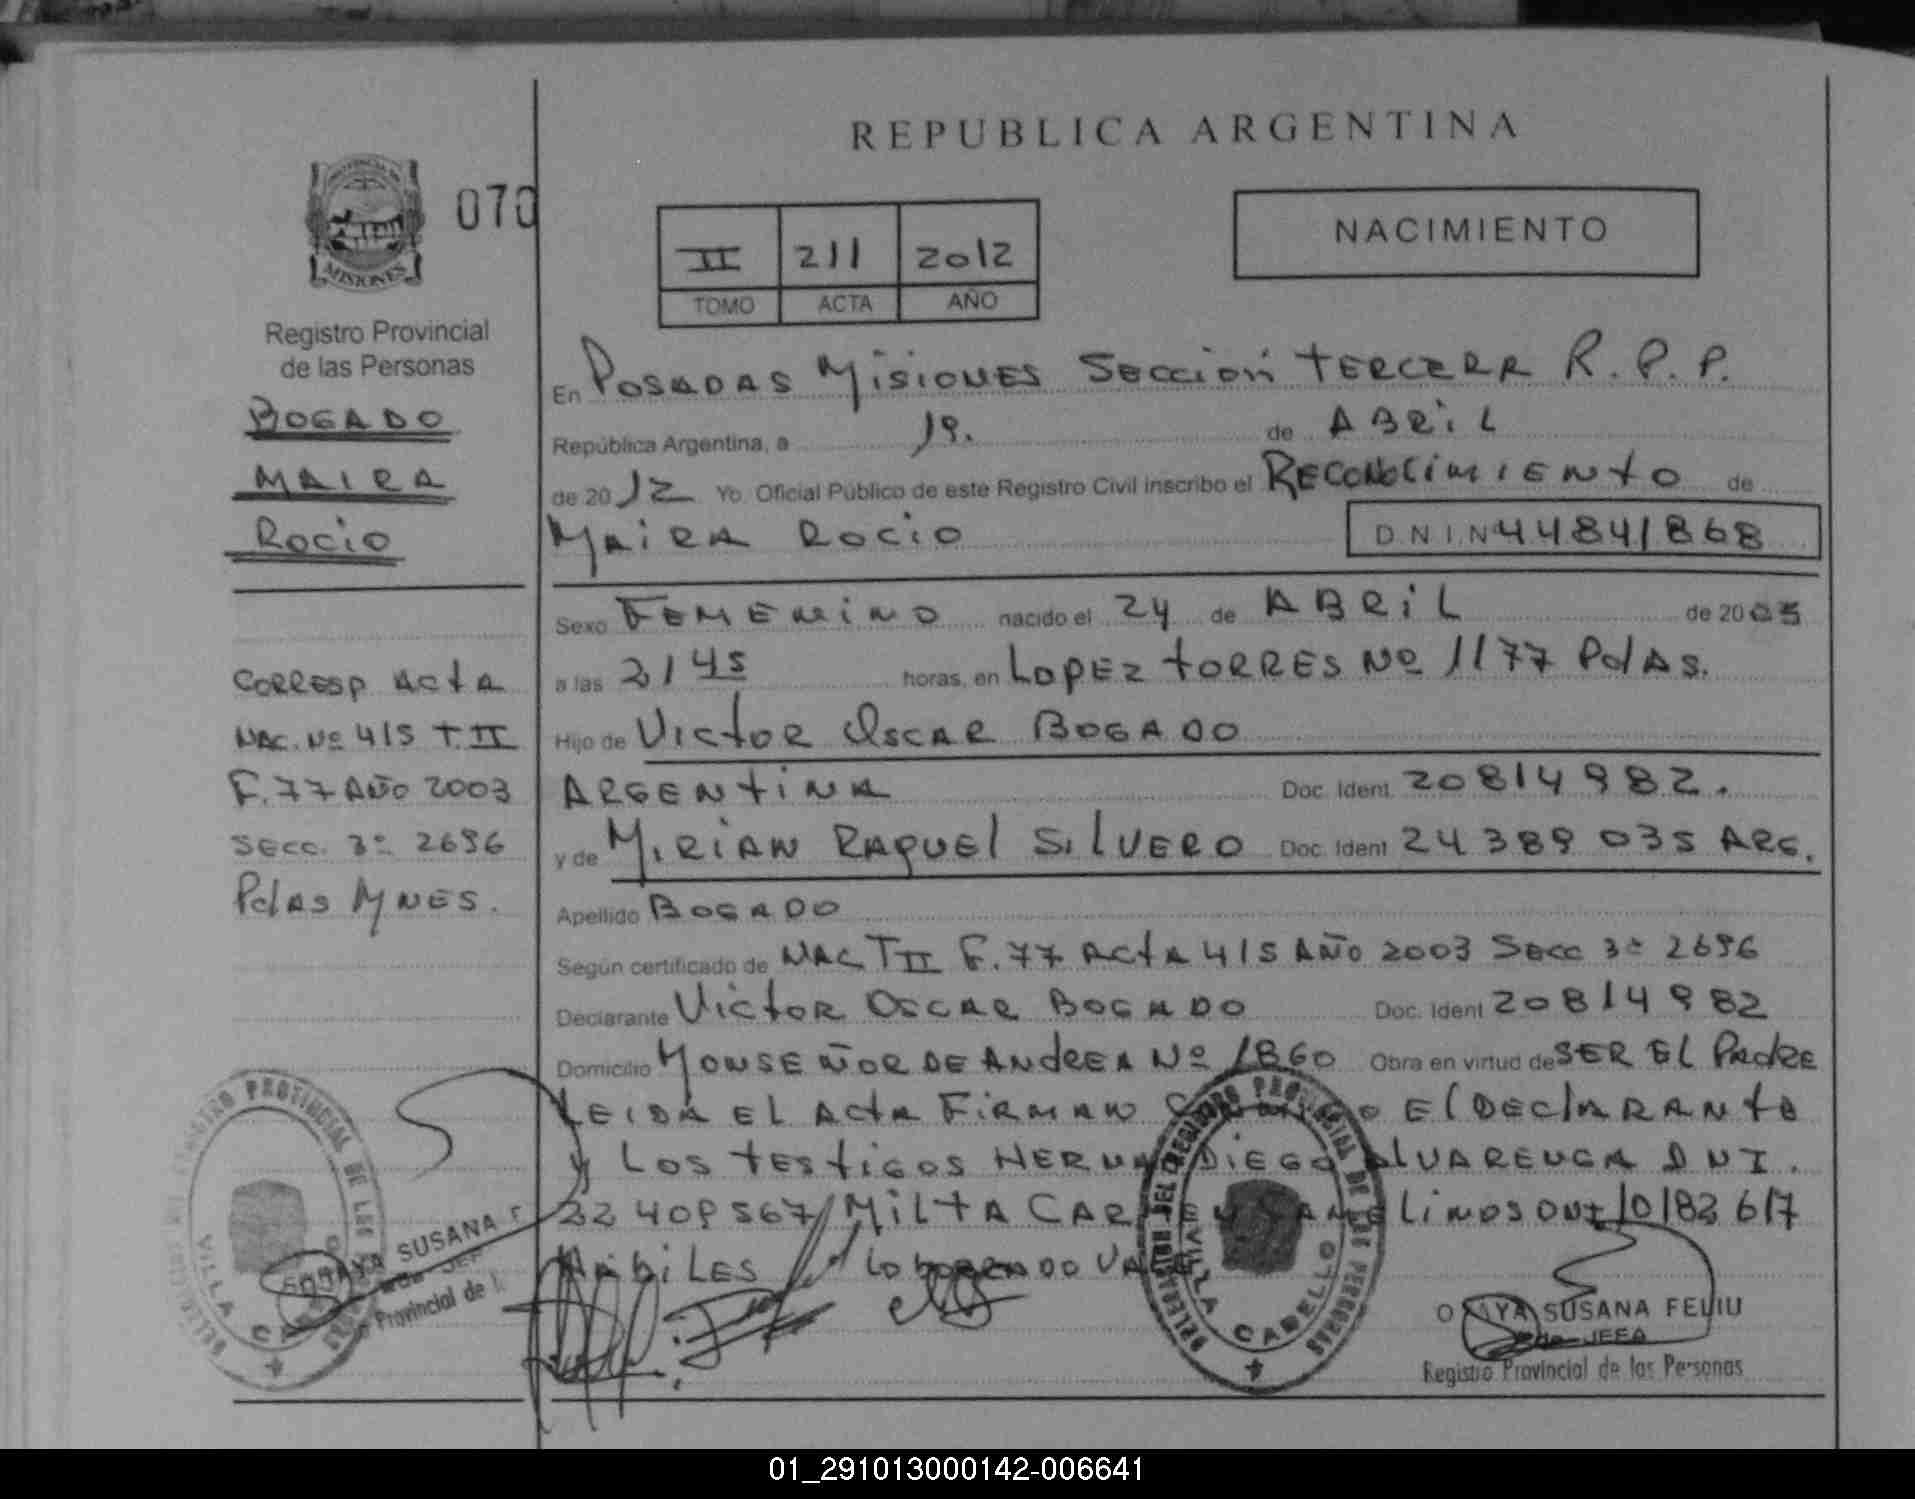 REPUBLICA ARGENTINA
PROVINCIA DE
MISIONES
070
II 211 2012
TOMO ACTA AÑO
NACIMIENTO
Registro Provincial
de las Personas
BOGADO
MAIRA
ROCIO
CORRESP ACTA
NAC. Nº 415 T. II
F. 77 AÑO 2003
SECC. 3ª 2696
PdAS MNES.
En POSADAS MISIONES SECCIÓN TERCERA R. P. P.
República Argentina, a 19. de ABRIL
de 2012 Yo Oficial Público de este Registro Civil inscribo el RECONOCIMIENTO de
MAIRA ROCIO D.N.I.N 44841868
Sexo FEMENINO nacido el 24 de ABRIL de 2003
a las 21 45 horas, en LOPEZ TORRES Nº 1177 PdAS.
Hijo de VICTOR OSCAR BOGADO
ARGENTINA Doc. Ident. 20814982.
y de MIRIAN RAQUEL SILVERO Doc. Ident 24389035 ARG.
Apellido BOGADO
Según certificado de NAC T II F. 77 ACTA 415 AÑO 2003 SECC 3ª 2696
Declarante VICTOR OSCAR BOGADO Doc. Ident 20814982
Domicilio MONSEÑOR DE ANDREA Nº 1860 Obra en virtud de SER EL PADRE
LEIDA EL ACTA FIRMAN EL DECLARANTE
Y LOS TESTIGOS DIEGO ALVARENGA DNI.
22409567/MILTA DNI 10182617
HABILES LO BORRADO VALE
REGISTRO PROVINCIAL DE LAS
VILLA
SUSANA
Provincial de
DELEGACION DEL REGISTRO PROVINCIAL DE LAS PERSONAS
VILLA CABELLO
SUSANA FELIU
JEFA
Registro Provincial de las Personas
01_291013000142-006641